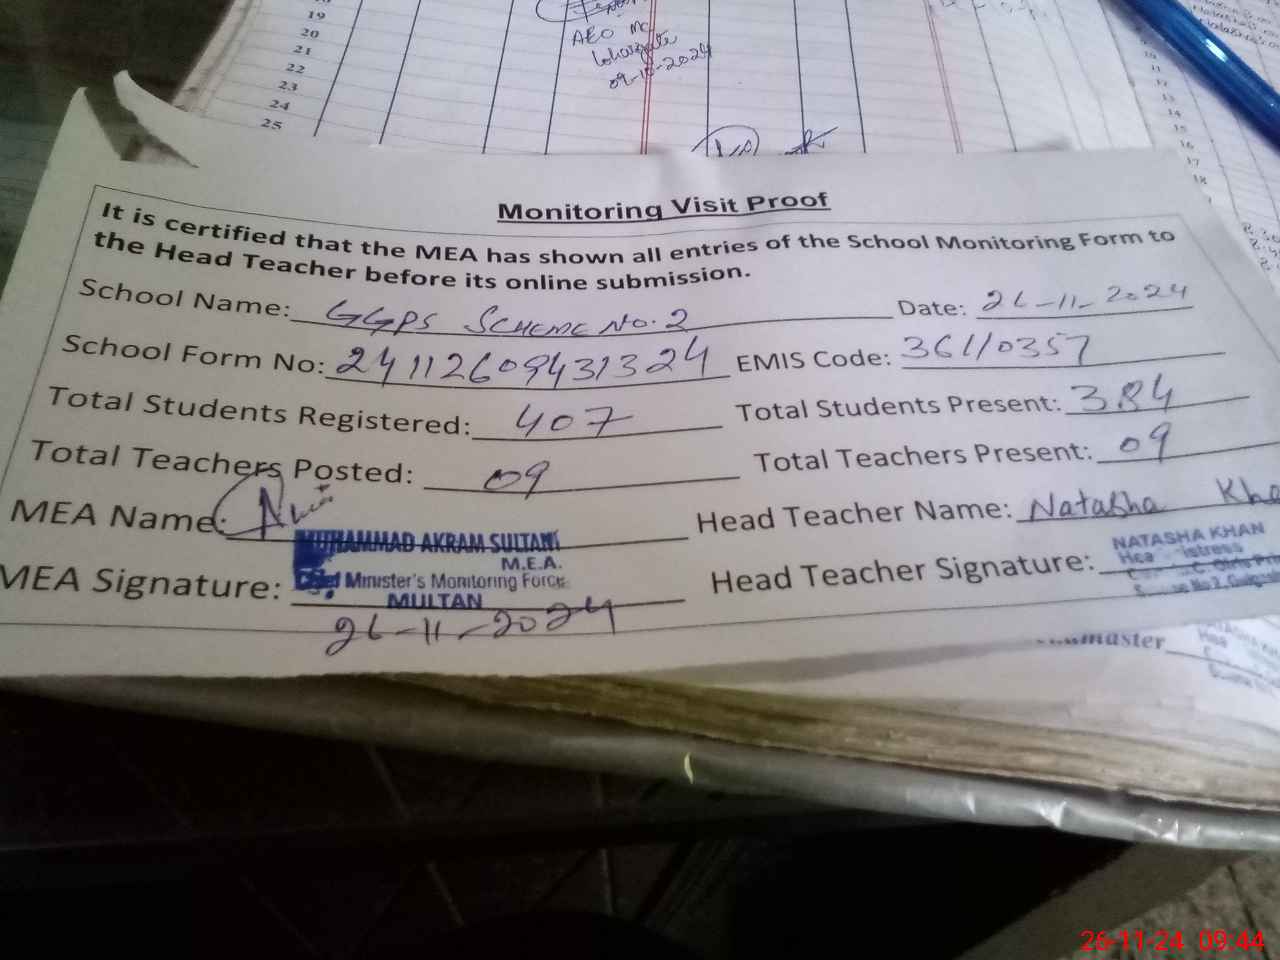 19
20
21
22
23
24
25
AEO MC
09-10-2024
Monitoring Visit Proof
It is certified that the MEA has shown all entries of the School Monitoring Form to
the Head Teacher before its online submission.
School Name: GGPS SCHEME NO. 2 Date: 26-11-2024
School Form No: 24112609431324 EMIS Code: 36110357
Total Students Registered: 407 Total Students Present: 384
Total Teachers Posted: 09 Total Teachers Present: 09
MEA Name: Head Teacher Name: Natasha Kha
MUHAMMAD AKRAM SULTANI
M.E.A.
Chief Minister's Monitoring Force
MULTAN
MEA Signature: Head Teacher Signature:
NATASHA KHAN
26-11-2024
26-11-24 09:44